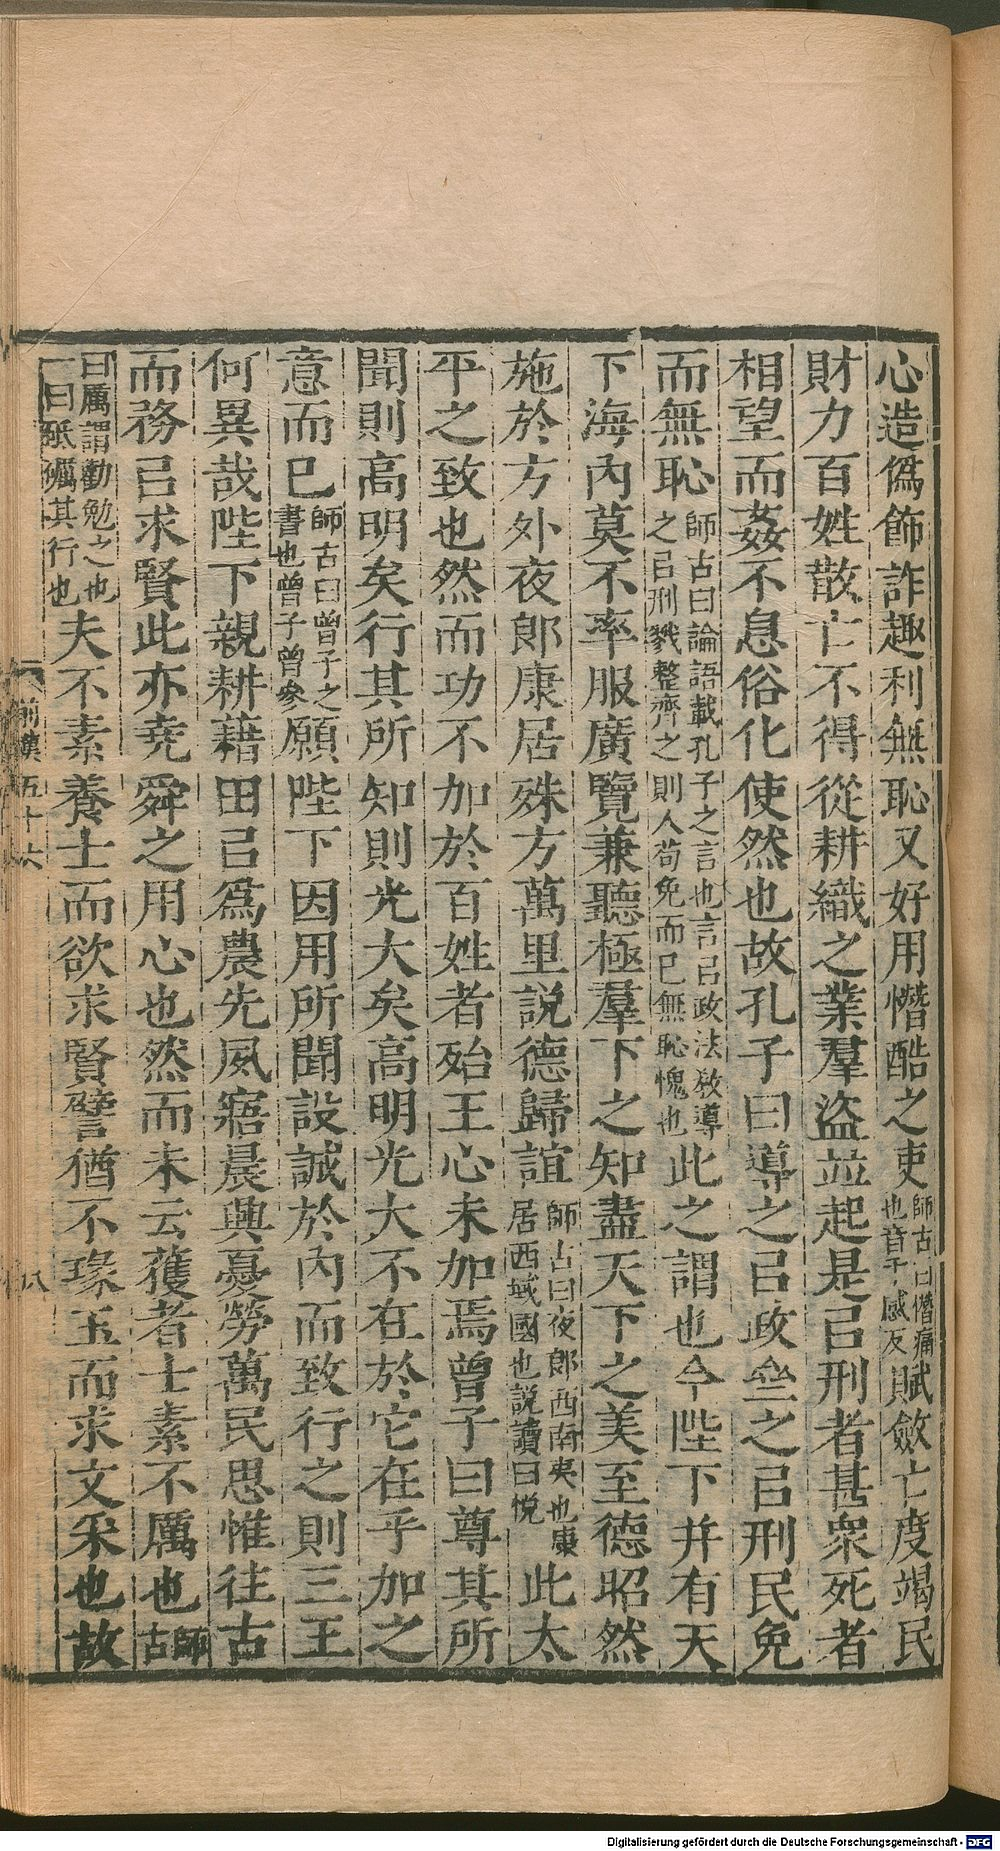 心造僞飾詐趣利無恥又好用憯酷之吏師古曰憯痛也音千感反賦斂亡度竭民
財力百姓散亡不得從耕織之業羣盜並起是㠯刑者甚衆死者
相望而姦不息俗化使然也故孔子曰導之㠯政坐之㠯刑民免
而無恥師古曰論語載孔子之言也言㠯政法敎導之㠯刑戮整齊之則人苟免而已無恥愧也此之謂也今陛下并有天
下海內莫不率服廣覽兼聽極羣下之知盡天下之美至德昭然
施於方外夜郎康居殊方萬里說德歸誼師古曰夜郎西南夷也康居西域國也說讀曰悅此太
平之致也然而功不加於百姓者殆王心未加焉曾子曰尊其所
聞則高明矣行其所知則光大矣高明光大不在於它在乎加之
意而已師古曰曾子之書也曾子曾參願陛下因用所聞設誠於內而致行之則三王
何異哉陛下親耕藉田㠯爲農先夙寤晨興憂勞萬民思惟往古
而務㠯求賢此亦堯舜之用心也然而未云獲者士素不厲也師古
曰厲謂勸勉之也一曰砥礪其行也夫不素養士而欲求賢譬猶不瑑玉而求文采也故
前漢五十六
八
Digitalisierung gefördert durch die Deutsche Forschungsgemeinschaft - DFG